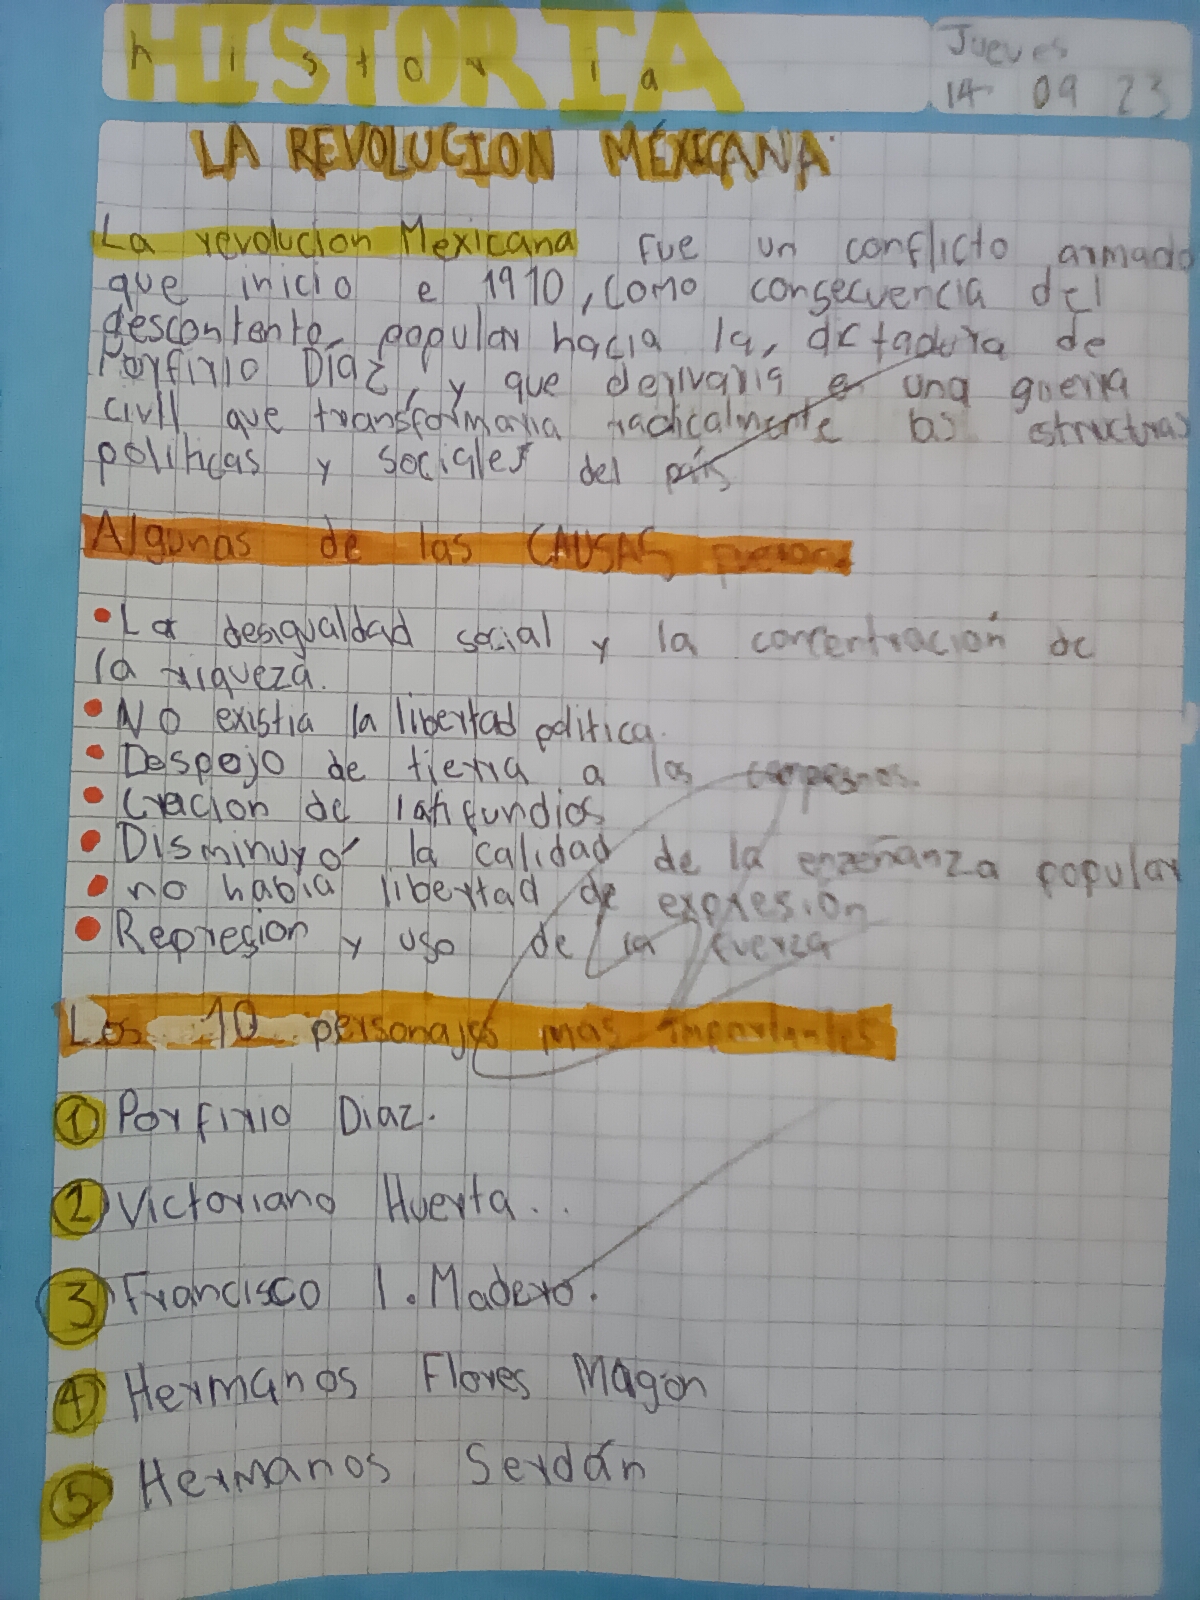 HISTORIA
historia
Jueves
14 09 23
LA REVOLUCION MEXICANA
La revolucion Mexicana fue un conflicto armado
que inicio e 1910, como consecuencia del
descontento popular hacia la, dictadura de
Porfirio Díaz, y que derivaria e una guerra
civil que transformaria radicalmente las structuras
politicas y sociales del país
Algunas de las CAUSAS
• La desigualdad social y la concentración de
la riqueza.
• No existia la libertad politica.
• Despojo de tierra a los campesnos.
• Cracion de latifundios
• Disminuyó la calidad de la enzeñanza popular
• no habia libertad de expresión
• Represion y uso de la fuerza
Los 10 personajes mas importantes
1 Porfirio Diaz.
2 Victoriano Huerta...
3 Francisco I. Madero.
4 Hermanos Flores Magón
5 Hermanos Serdán